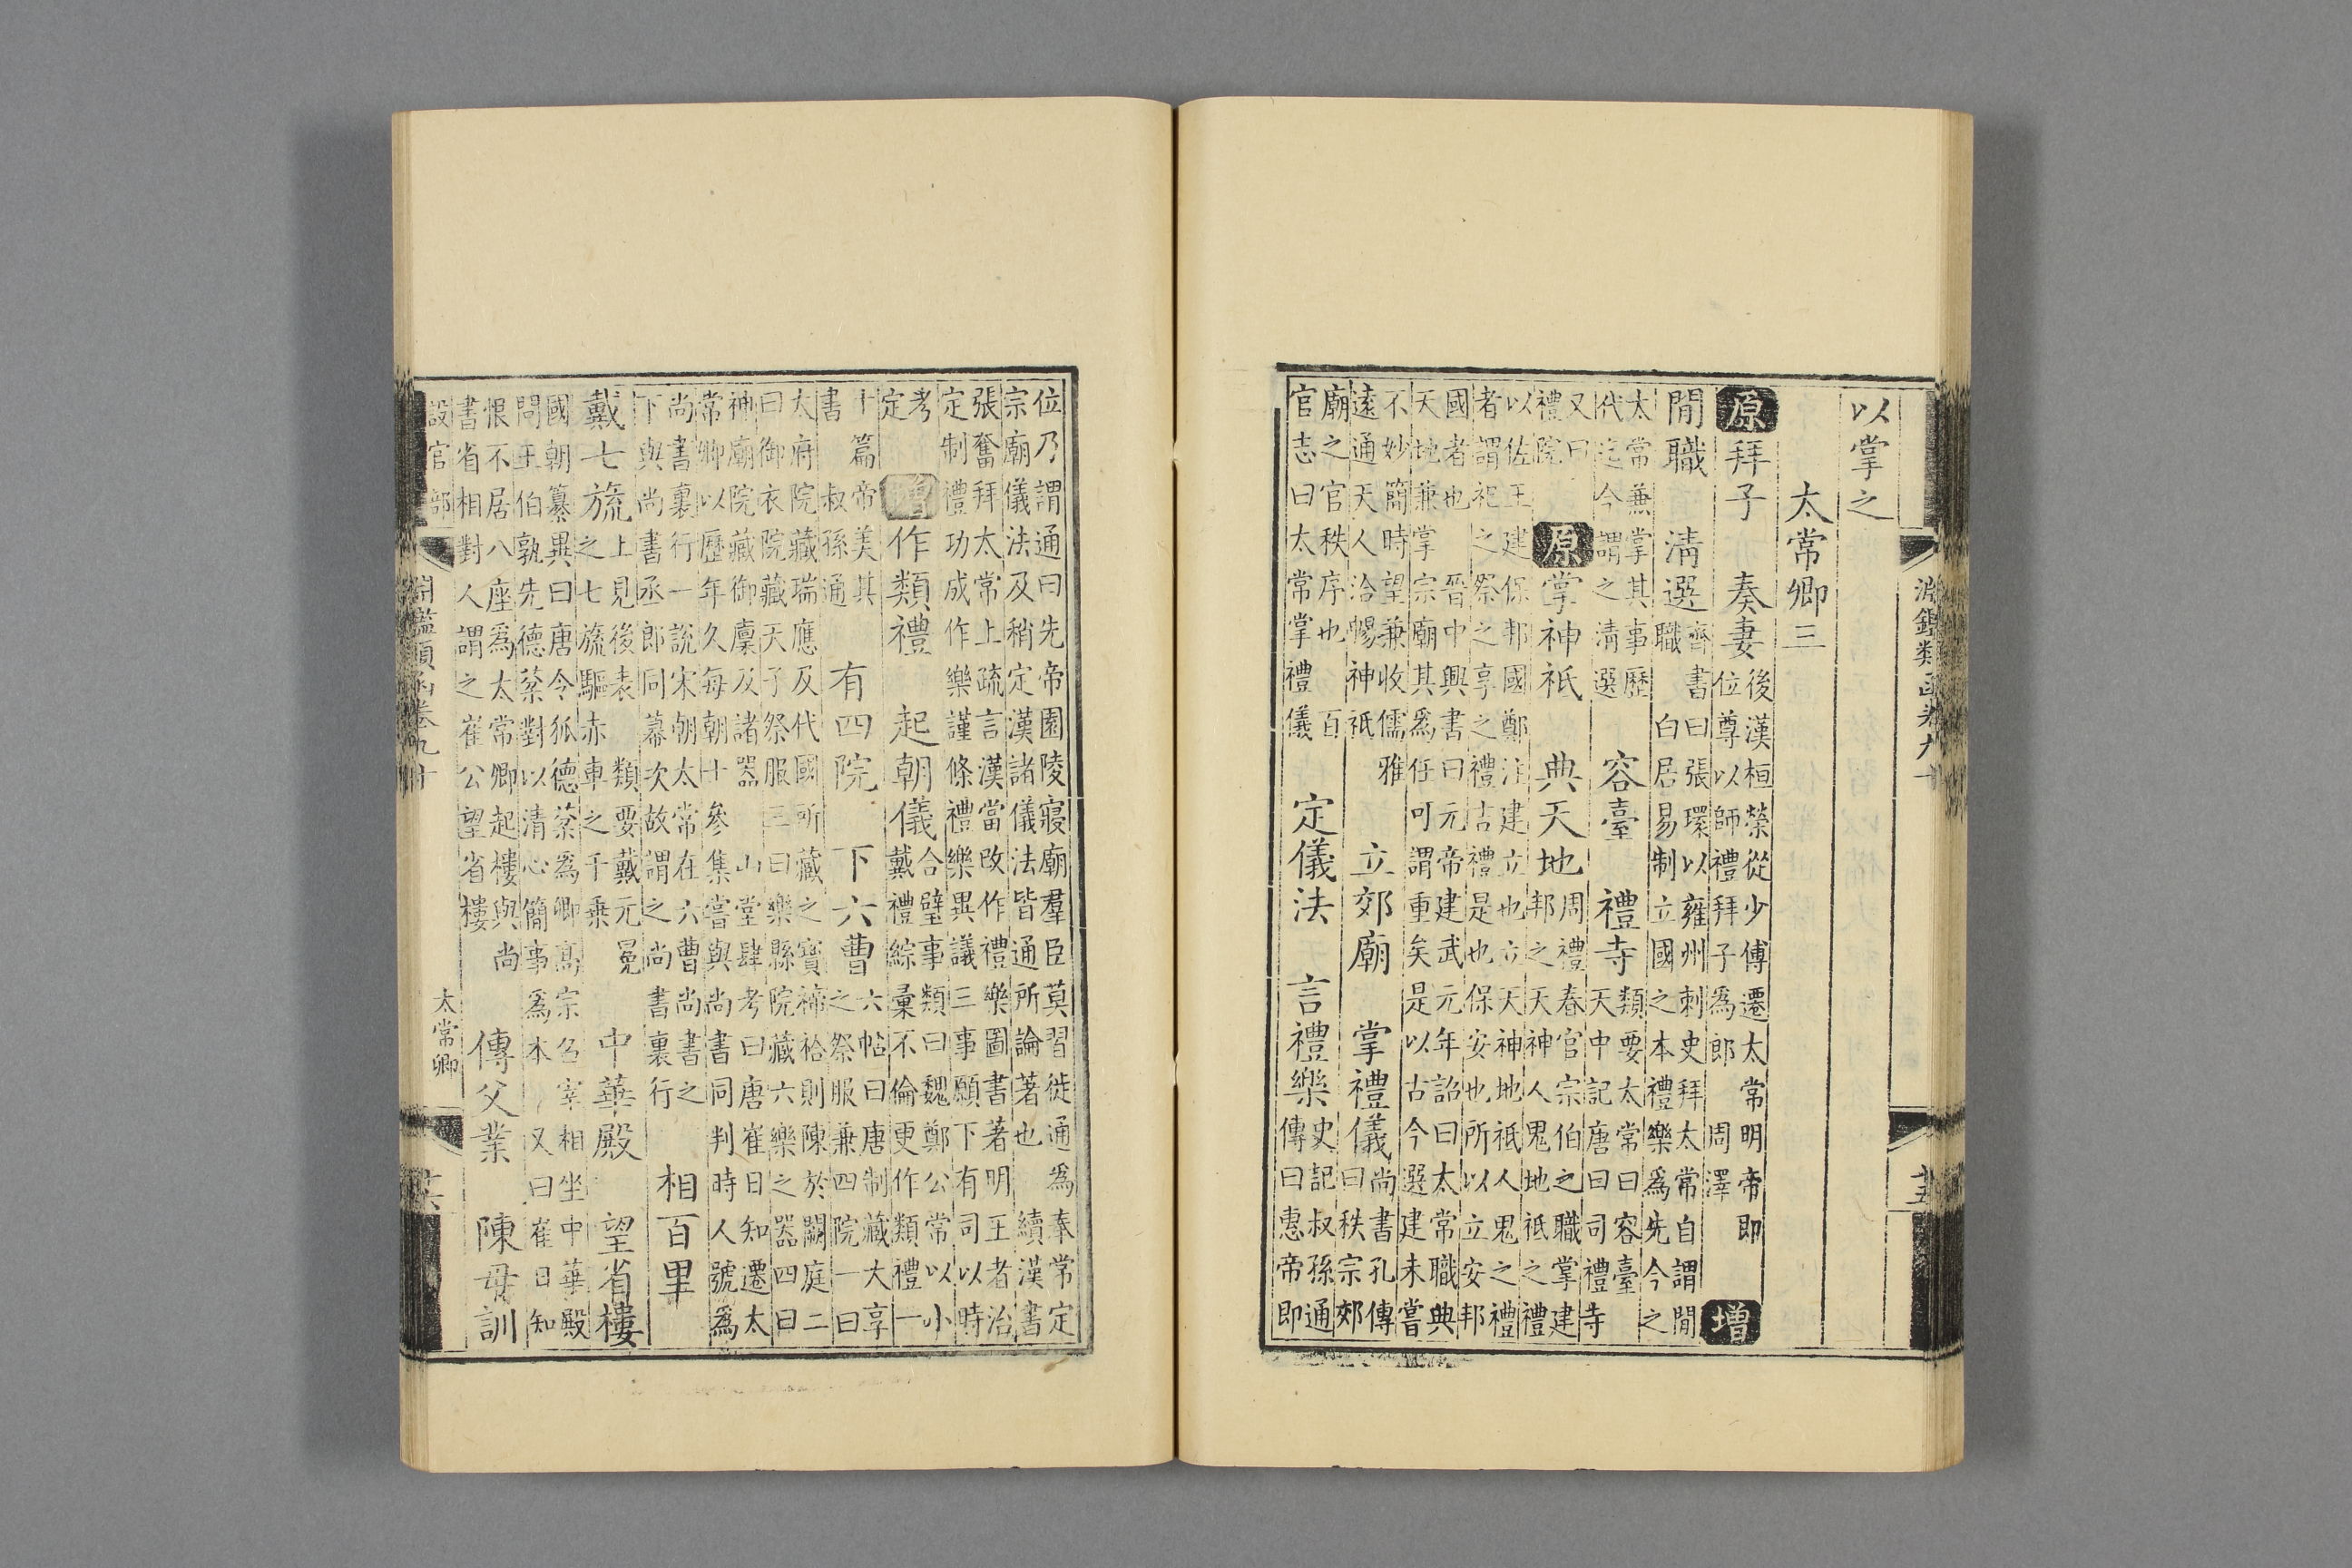 淵鑑類函卷九十 十五
以掌之
太常卿三
原 拜子 奏妻 後漢桓榮從少傅遷太常明帝即
位尊以師禮拜子為郎 周澤 增
閒職 清選 齊書曰張環以雍州刺史拜太常自謂閒
職 白居易制立國之本禮樂為先今之
太常兼掌其事歷
代迄今謂之清選 容臺 禮寺 類要太常曰容臺
天中記唐曰司禮寺
又曰
禮院 原 掌神祇 典天地 周禮春官宗伯之職掌建
邦之天神人鬼地祇之禮
以佐王建保邦國鄭注建立也立天神地祇人鬼之禮
者謂祀之祭之享之禮吉禮是也保安也所以立安邦
國者也 晉中興書曰元帝建武元年詔曰太常職典
天地兼掌宗廟其為任可謂重矣是以古今選建未嘗
不妙簡時望兼收儒雅
遠通天人洽暢神祇 立郊廟 掌禮儀 尚書孔傳
曰秩宗郊
廟之官秩序也 百
官志曰太常掌禮儀 定儀法 言禮樂 史記叔孫通
傳曰惠帝即
位乃謂通曰先帝園陵寢廟羣臣莫習徙通為奉常定
宗廟儀法及稍定漢諸儀法皆通所論著也 續漢書
張奮拜太常上疏言漢當改作禮樂圖書著明王者治
定制禮功成作樂謹條禮樂異議三事願下有司以時
考
定 增 作類禮 起朝儀 合璧事類曰魏鄭公常以小
戴禮綜彙不倫更作類禮一
十篇帝美其
書 叔孫通 有四院 下六曹 六帖曰唐制藏大享
之祭服兼四院一曰
大府院藏瑞應及代國所藏之寶禘祫則陳於闕庭二
曰御衣院藏天子祭服三曰樂縣院藏六樂之器四曰
神廟院藏御廩及諸器 山堂肆考曰唐崔日知遷太
常卿以歷年久每朝士參集嘗與尚書同判時人號為
尚書裏行一說宋朝太常在六曹尚書之
下與尚書丞郎同幕次故謂之尚書裏行 相百里
戴七旒 上見後表 類要戴元冕
之七旒驅赤車之千乗 中華殿 望省樓
國朝纂異曰唐令狐德棻為卿高宗召宰相坐中華殿
問王伯孰先德棻對以清心簡事為本 又曰崔日知
恨不居八座為太常卿起樓與尚
書省相對人謂之崔公望省樓 傳父業 陳母訓
設官部 太常卿
淵鑑類函卷九十 十六